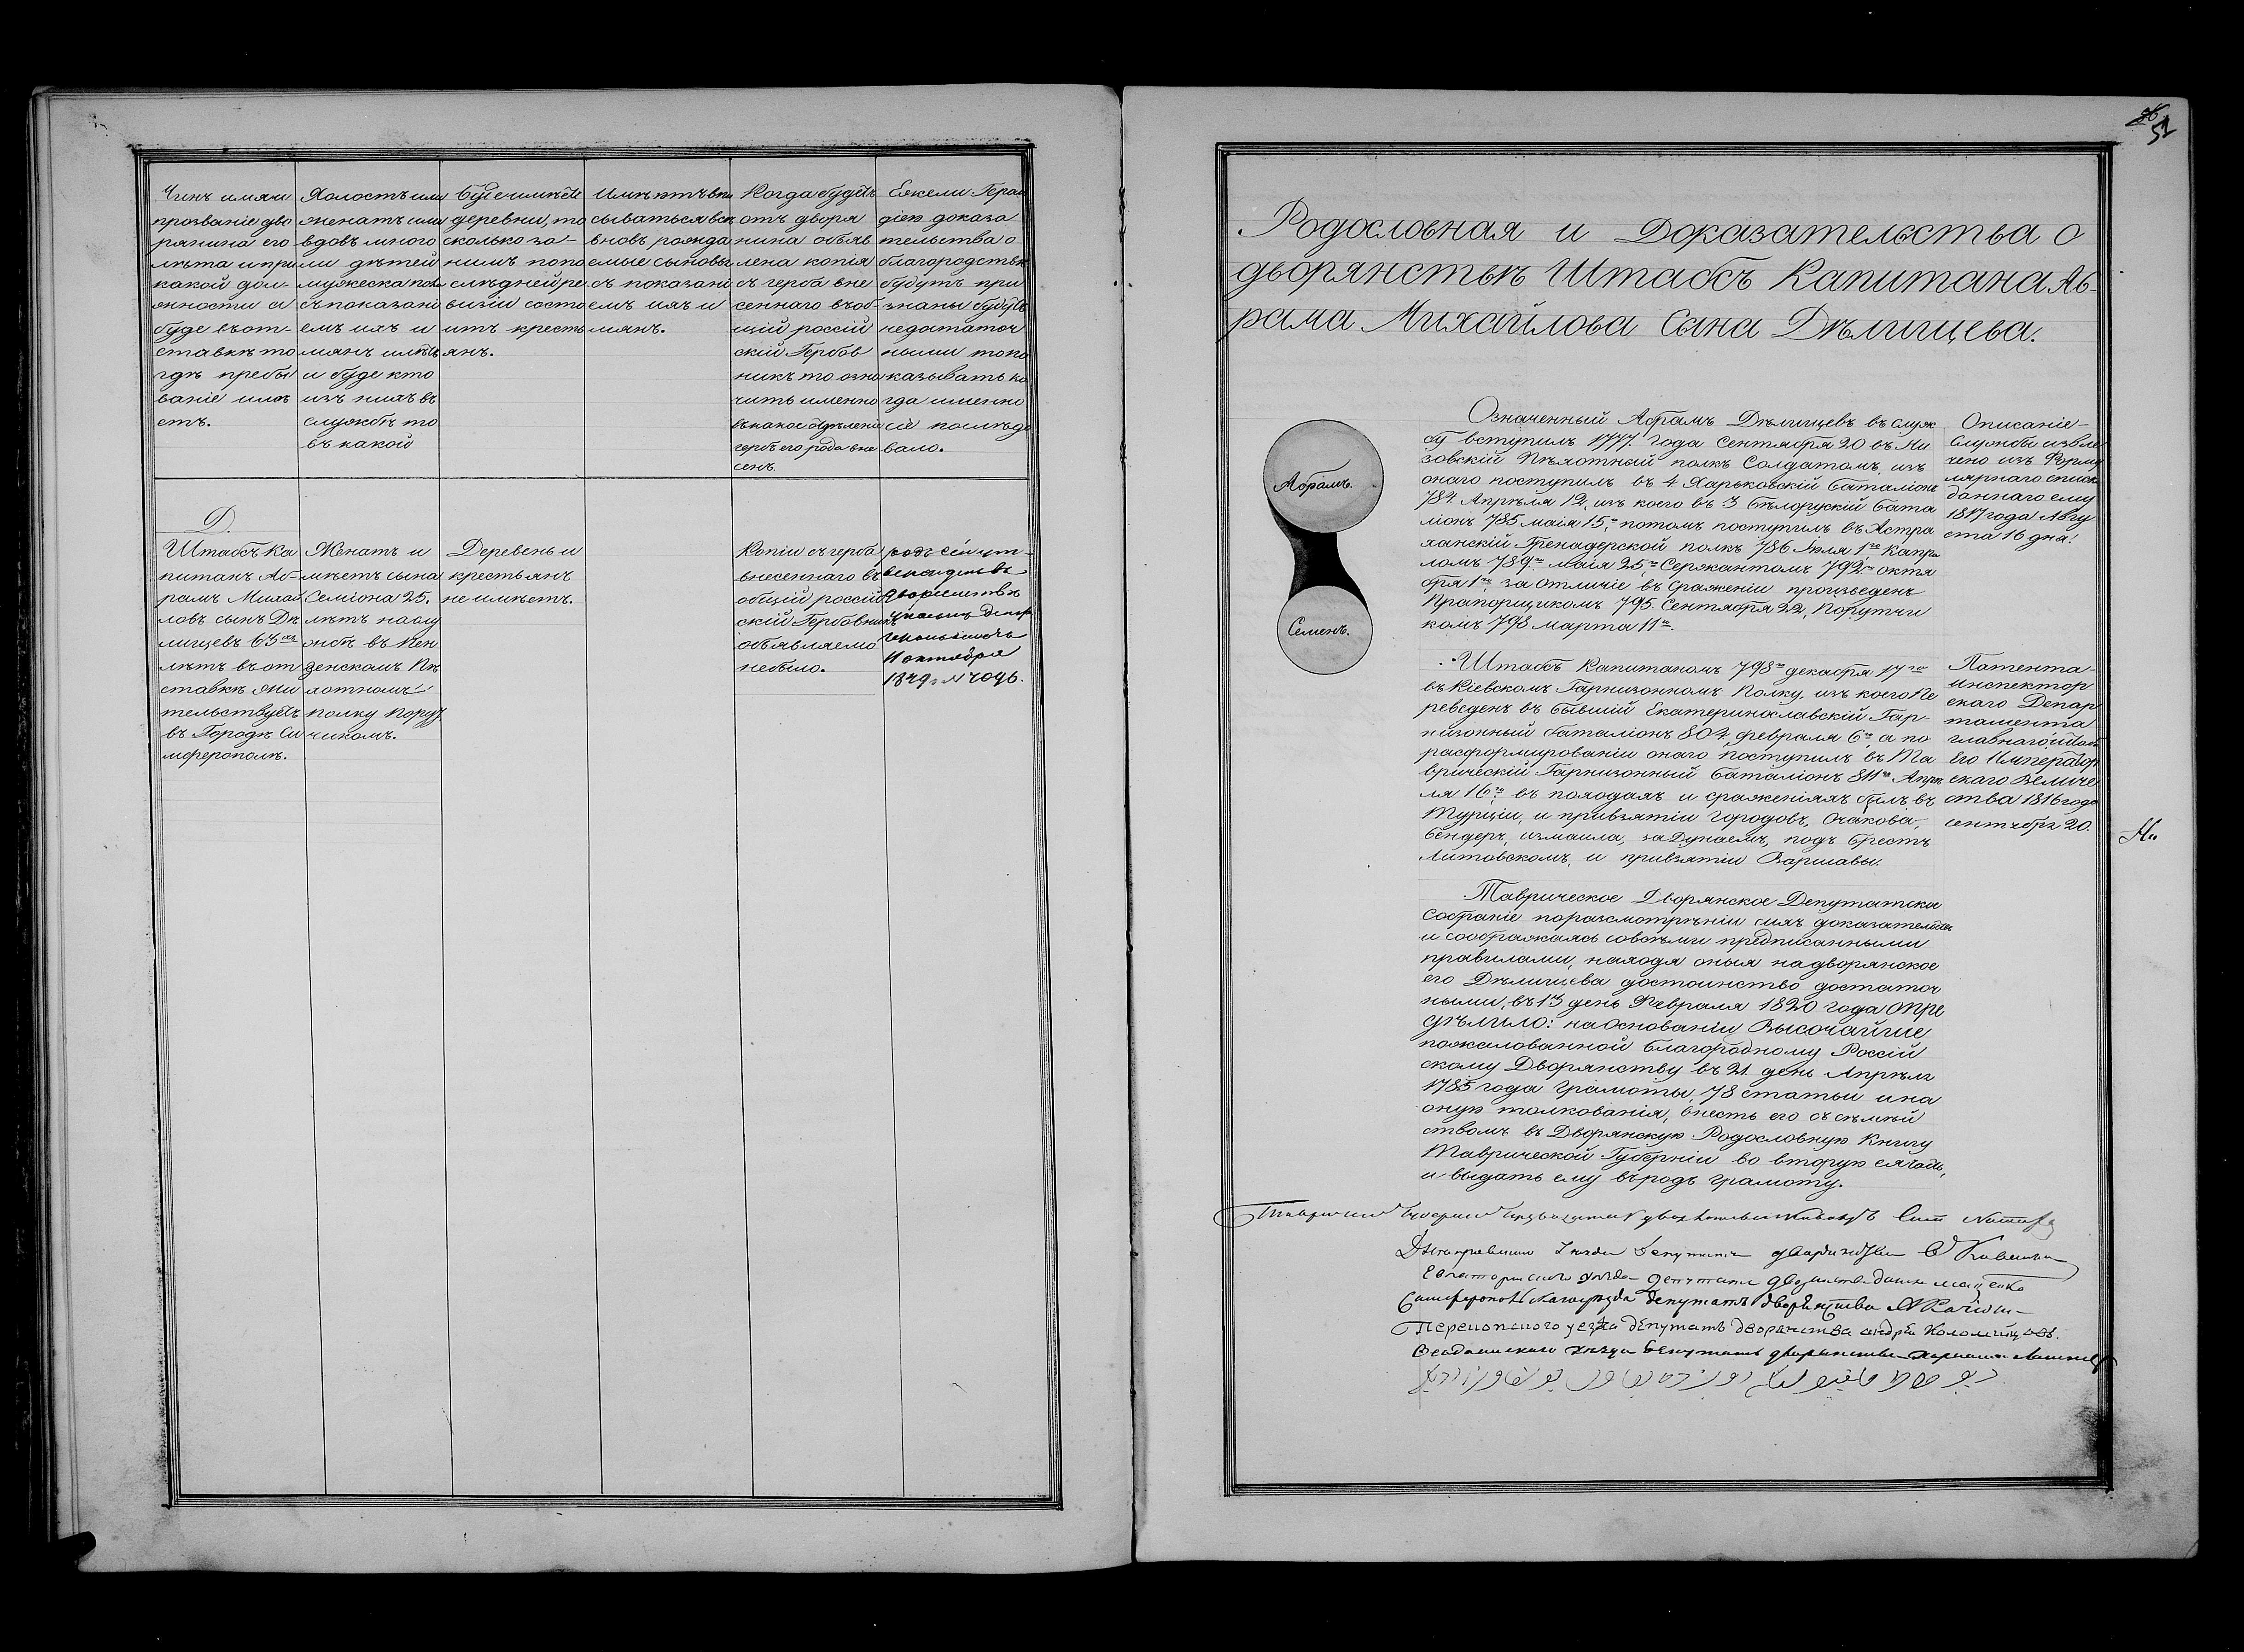 Чинъ имяи
прозваніе дво
рянина его
лѣта ипри
какой дол-
жности а
буде въот-
ставкѣ то
гдѣ пребы
ваніе имѣ
етъ.
Холостъ или
женатъ или
вдовъ много
ли дѣтей
мужеска пола
съпоказані
емъ ихъ и
мянъ имѣтъ
и буде кто
изъ нихъ въ
службѣ то
въ какой
Буде имѣетъ
деревни, то
сколько за-
нимъ попо
слѣдней ре
визіи состо
итъ кресть
янъ.
Имѣютъ впи
сываться всѣ
вновь рожда
емые сыновья
съ показані
емъ ихъ и
мянъ.
Когда будетъ
отъ дворя
нина объяв
лена копія
съ герба вне
сеннаго въоб-
щій россій
скій Гербов
никъ то озна
чить именно
въ какое отдѣлені
гербъ его рода вне
сенъ.
Ежели Герол
діею доказа
тельства о
благородствѣ
будутъ при
знаны будутъ
недостаточ
ными то по
казывать ко
гда именно
сіе послѣдо
вало.
Д.
Штабсъ Ка
питанъ Аб-
рамъ Михай
ловъ сынъ Дѣ
лищевъ 63хъ
лѣтъ въ от
ставкѣ жи
тельствуетъ
въ Городѣ Си
мферополѣ.
Женатъ и
мѣетъ сына
Семіона 25.
лѣтъ наслу
жбѣ въ Пен
зенскомъ Пѣ
хотномъ
полку Поруч
чикомъ.
Деревень и
крестьянъ
не имѣетъ.
Копіи съ герба
внесеннаго въ
общій россій
скій Гербовникъ
объявляемо
небыло.
родъ сей ут-
вержденъ въ
дворянствѣ
11 октября
1849 г.
56
51
Родословная и Доказательства о
дворянствѣ Штабсъ Капитана Аб-
рама Михайлова Сына Дѣлищева.
Абрамъ.
Семенъ.
Означенный Абрамъ Дѣлищевъ въ служ
бу вступилъ 1777. года Сентября 20 въ Ни
зовскій Пѣхотный полкъ Солдатомъ, изъ
онаго поступилъ въ 4 Харьковскій баталіонъ
784. Апрѣля 12, изъ коего въ 3 Бѣлорускій бата
ліонъ 785 маія 15го потомъ поступилъ въ Астра
ханскій Гренадерской полкъ 786 Іюля 1го Капра
ломъ 789го маія 25го Сержантомъ 792го октя
бря 1го за отличіе въ Сраженіи произведенъ
Прапорщикомъ 795. Сентября 22, Порутчи
комъ 798 марта 11го.
Описаніе
Службы извле
чено изъ Форму
лярнаго списка
даннаго ему
1817 года Авгу
ста 16 дня.
Штабсъ Капитаномъ 798го декабря 17го
въ Кіевскомъ Гарнизонномъ Полку, изъ коего Пе
реведенъ въ бывшій Екатеринославскій Гар-
низонный баталіонъ 804. февраля 6го, а по
расформированіи онаго поступилъ въ Та
врическій Гарнизонный баталіонъ 811го Апрѣ
ля 16го въ походахъ и сраженіяхъ былъ въ
Турціи, и привзятіи городовъ, Очакова,
бендеръ, измаила, за Дунаемъ, подъ брестъ
Литовскомъ, и привзятіи Варшавы.
Патента
Инспектор
скаго Депар
тамента
главнаго штаба
Его Император
скаго Величе
ства 1816 года
сентября 20.
На
Таврическое Дворянское Депутатское
Собраніе поразсмотрѣніи сихъ доказательствъ
и соображаясь совсѣми предписанными
правилами, находя оныя надворянское
его Дѣлищева достоинство достаточ
ными, въ 13 день Февраля 1820 года Опре
дѣлило: наоснованіи Высочайше
пожалованной благородному Россій
скому Дворянству въ 21 день Апрѣля
1785 года Грамоты, 78 статьи и на
оную толкованія, внесть его съ семей
ствомъ въ Дворянскую Родословную Книгу
Таврической Губерніи во вторую ея часть,
и выдать ему въ родъ грамоту.
Днепровскаго уѣзда депутатъ дворянства
Евпаторійскаго уѣзда депутатъ дворянства
Симферопольскаго уѣзда депутатъ дворянства
Перекопского уезда депутатъ дворянства андрей Коломийцовъ.
Феодосійскаго уѣзда депутатъ дворянства